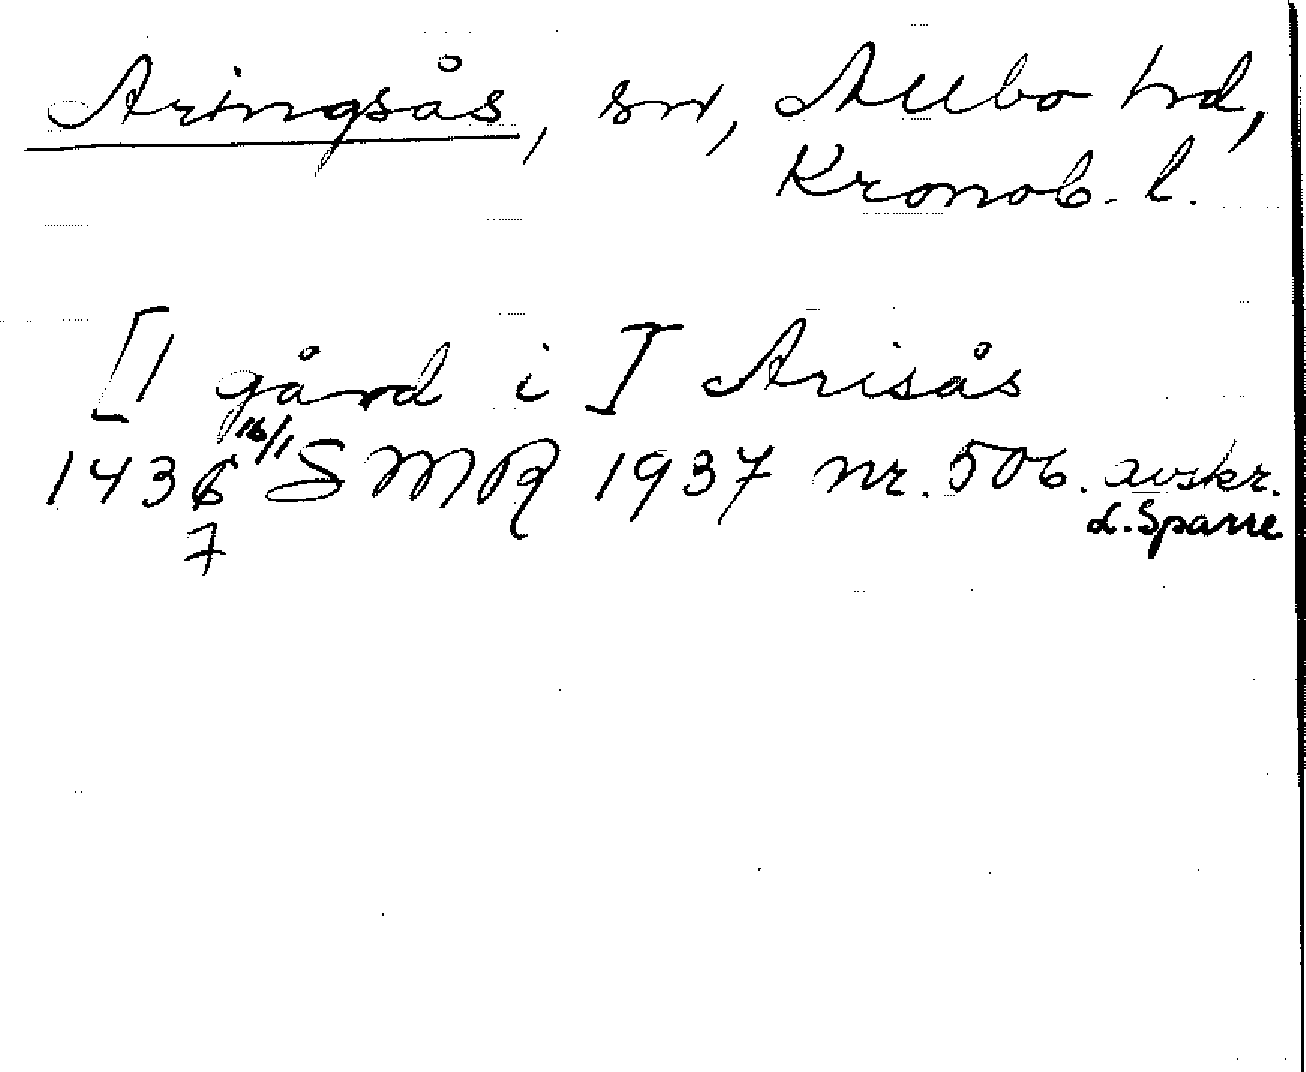 Aringsås, sn, Allbo hd,
Kronob. l.
[1 gård i] Arisås
1436 16/1 SMR 1937 nr. 506. avskr.
7 L. Sparre